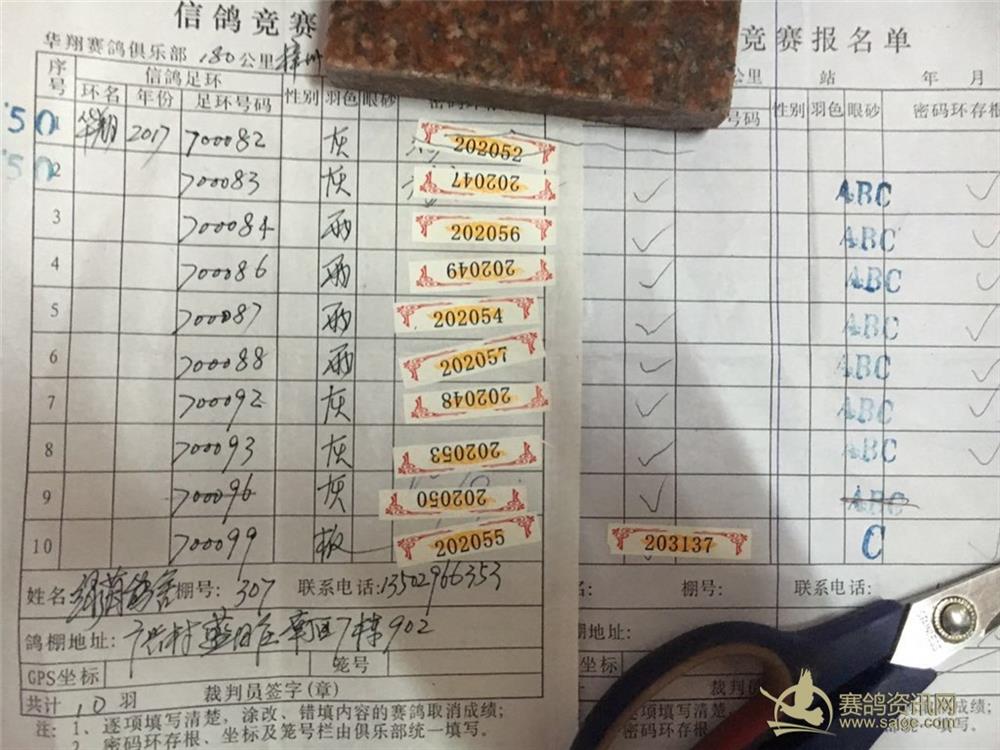 信鸽竞赛 竞赛报名单
华翔赛鸽俱乐部 180公里 公里 站 年 月
序号 信鸽足环 性别 羽色 眼砂
环名 年份 足环号码 号码 性别 羽色 眼砂 密码环存根
50 1 华翔 2017 700082 灰 202052
50 2 700083 灰 202047 ✓ ABC ✓
3 700084 雨 202056 ✓ ABC ✓
4 700086 雨 202049 ✓ ABC ✓
5 700087 雨 202054 ✓ ABC ✓
6 700088 雨 202057 ✓ ABC ✓
7 700092 灰 202048 ✓ ABC ✓
8 700093 灰 202053 ✓ ABC ✓
9 700096 灰 202050 ✓ ABC
10 700099 板 202055 203137 C
姓名: 棚号: 307 联系电话:13502966353 棚号: 联系电话:
鸽棚地址: 7栋902 鸽棚地址:
GPS坐标 笼号 GPS坐标
共计 10 羽 裁判员签字(章) 共计 羽 裁判员
注: 1、逐项填写清楚,涂改、错填内容的赛鸽取消成绩;
2、密码环存根、坐标及笼号栏由俱乐部统一填写。
赛鸽资讯网
www.saige.com